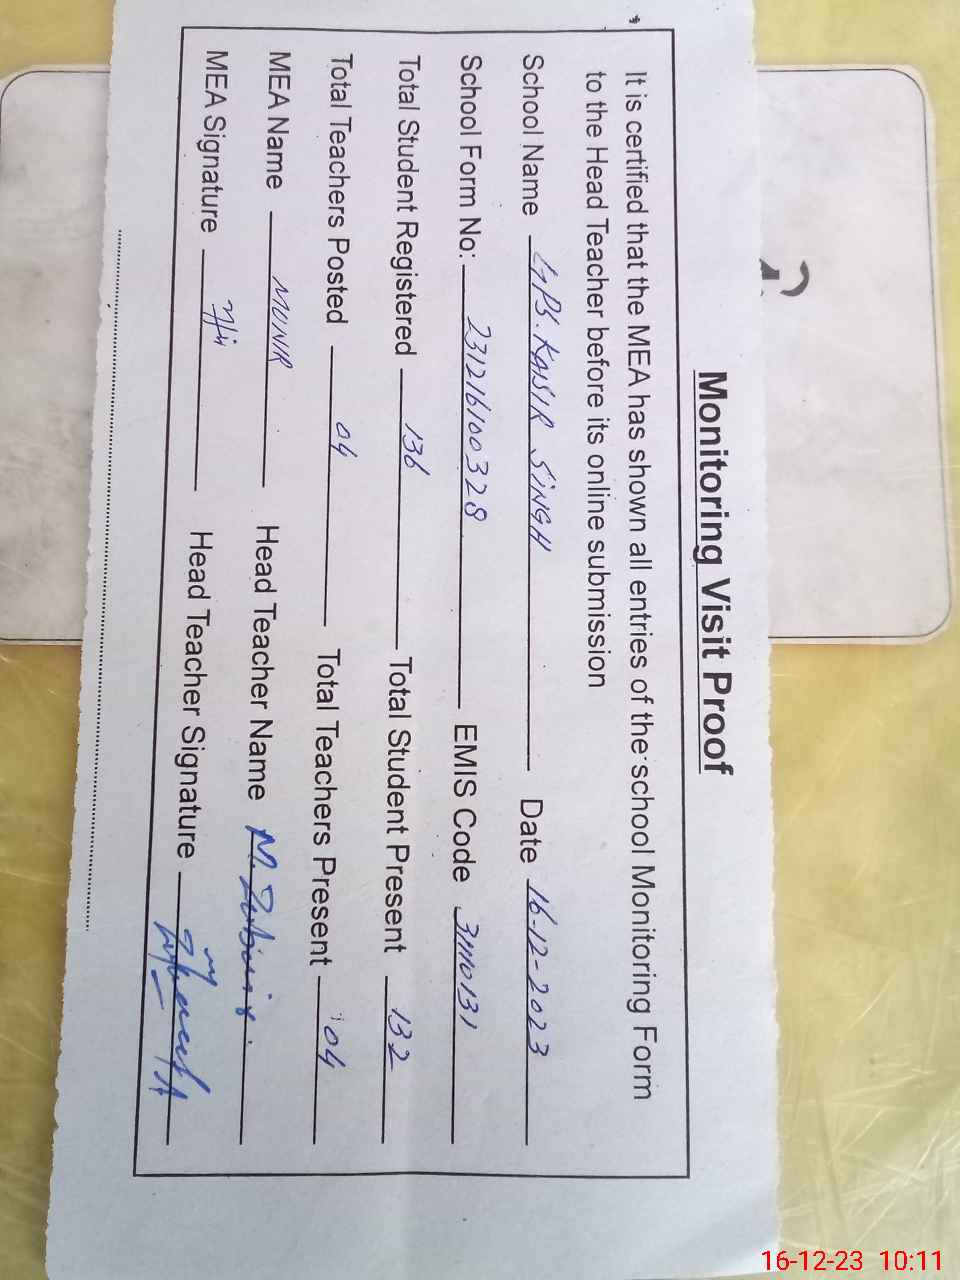 Monitoring Visit Proof
It is certified that the MEA has shown all entries of the school Monitoring Form
to the Head Teacher before its online submission
School Name GPS. KAISIR SINGH Date 16-12-2023
School Form No: 231216100328 EMIS Code 31110131
Total Student Registered 136 Total Student Present 132
Total Teachers Posted 04 Total Teachers Present 04
MEA Name MUNIR Head Teacher Name M.
MEA Signature Head Teacher Signature
16-12-23 10:11